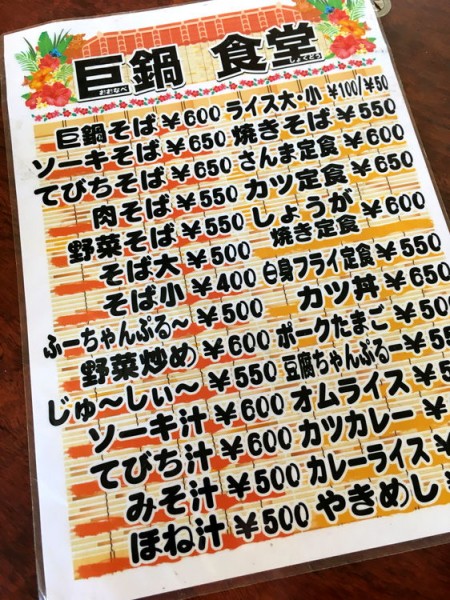 巨鍋 食堂
おおなべ しょくどう
巨鍋そば ¥600 ライス大・小 ¥100/¥50
ソーキそば ¥650 焼きそば ¥550
てびちそば ¥650 さんま定食 ¥600
肉そば ¥550 カツ定食 ¥650
野菜そば ¥550 しょうが焼き定食 ¥600
そば大 ¥500 白身フライ定食 ¥550
そば小 ¥400 カツ丼 ¥650
ふーちゃんぷる〜 ¥500 ポークたまご ¥50
野菜炒め ¥600 豆腐ちゃんぷるー ¥5
じゅ〜しぃ〜 ¥550 オムライス ¥5
ソーキ汁 ¥600 カツカレー ¥
てびち汁 ¥600 カレーライス ¥
みそ汁 ¥500 やきめし ¥
ほね汁 ¥500